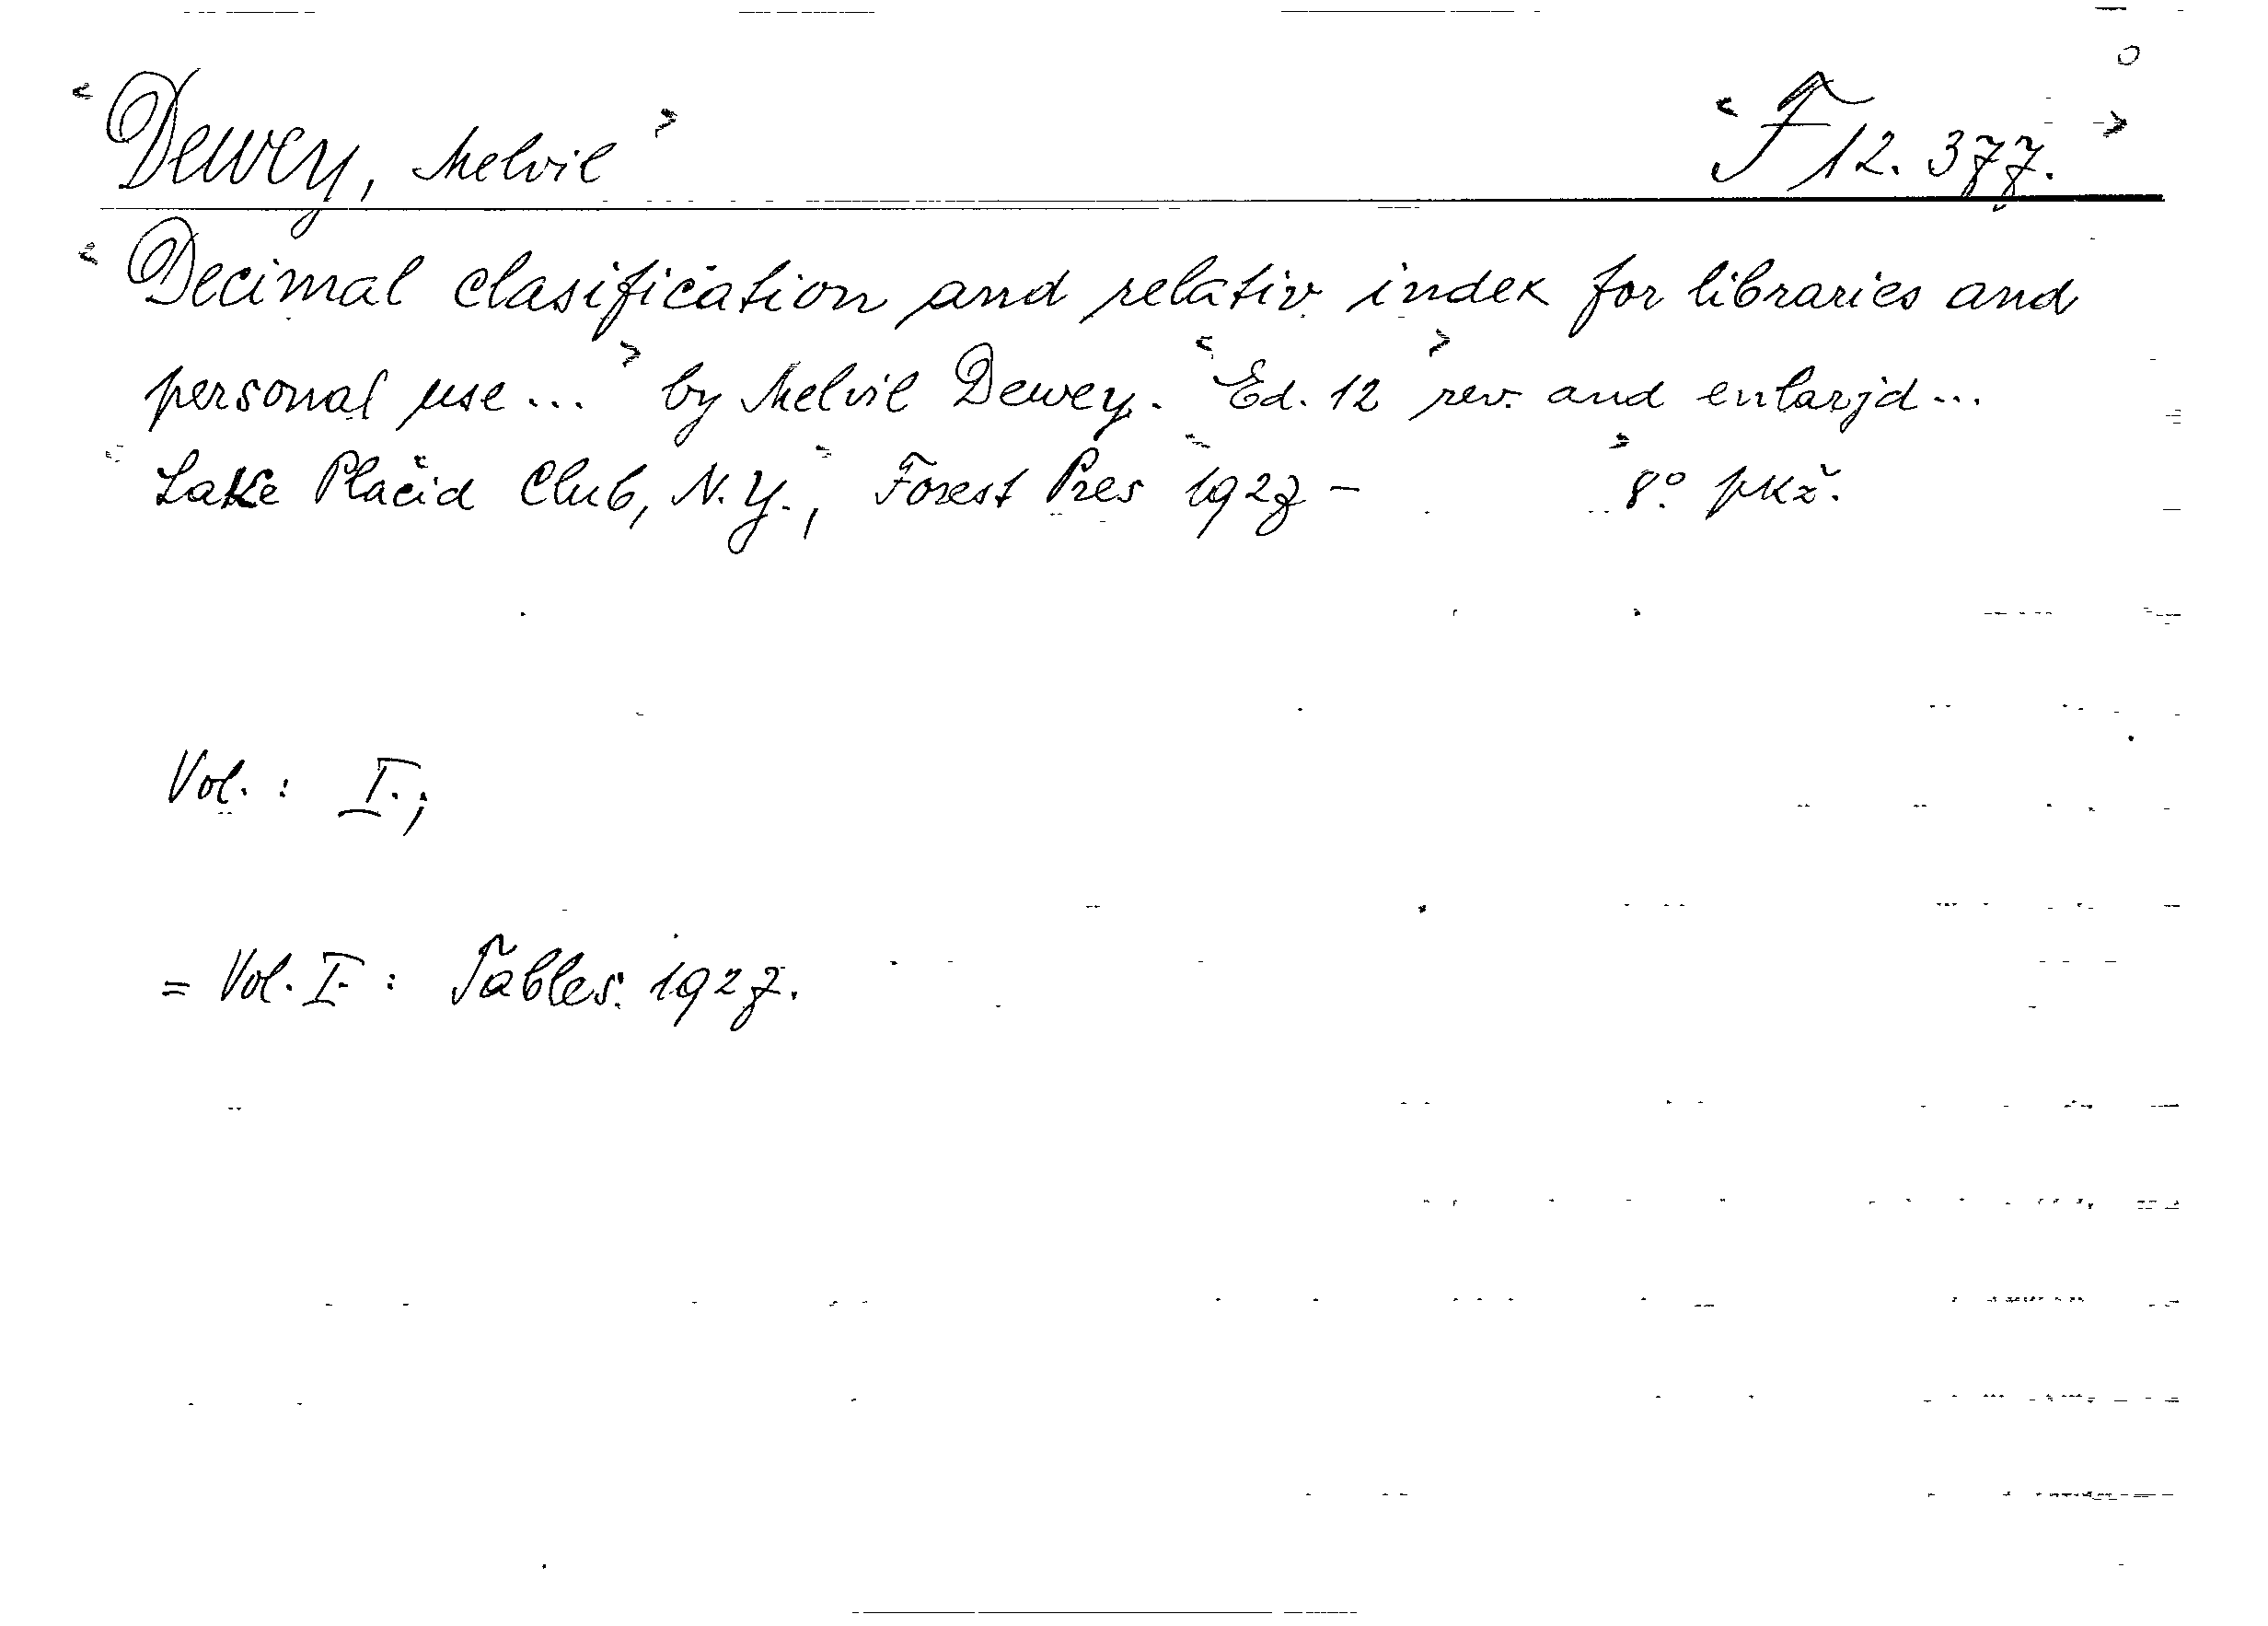 <Dewey, Melvil> <F 12.377.>
<Decimal clasification and relativ index for libraries and
personal use...> by Melvil Dewey. <Ed. 12> rev. and enlarjd...
<Lake Placid Club, N.Y.,> Forest Pres <1927 - > 8° pkž.
Vol. : I.;
= Vol. I. : Tables. 1927.